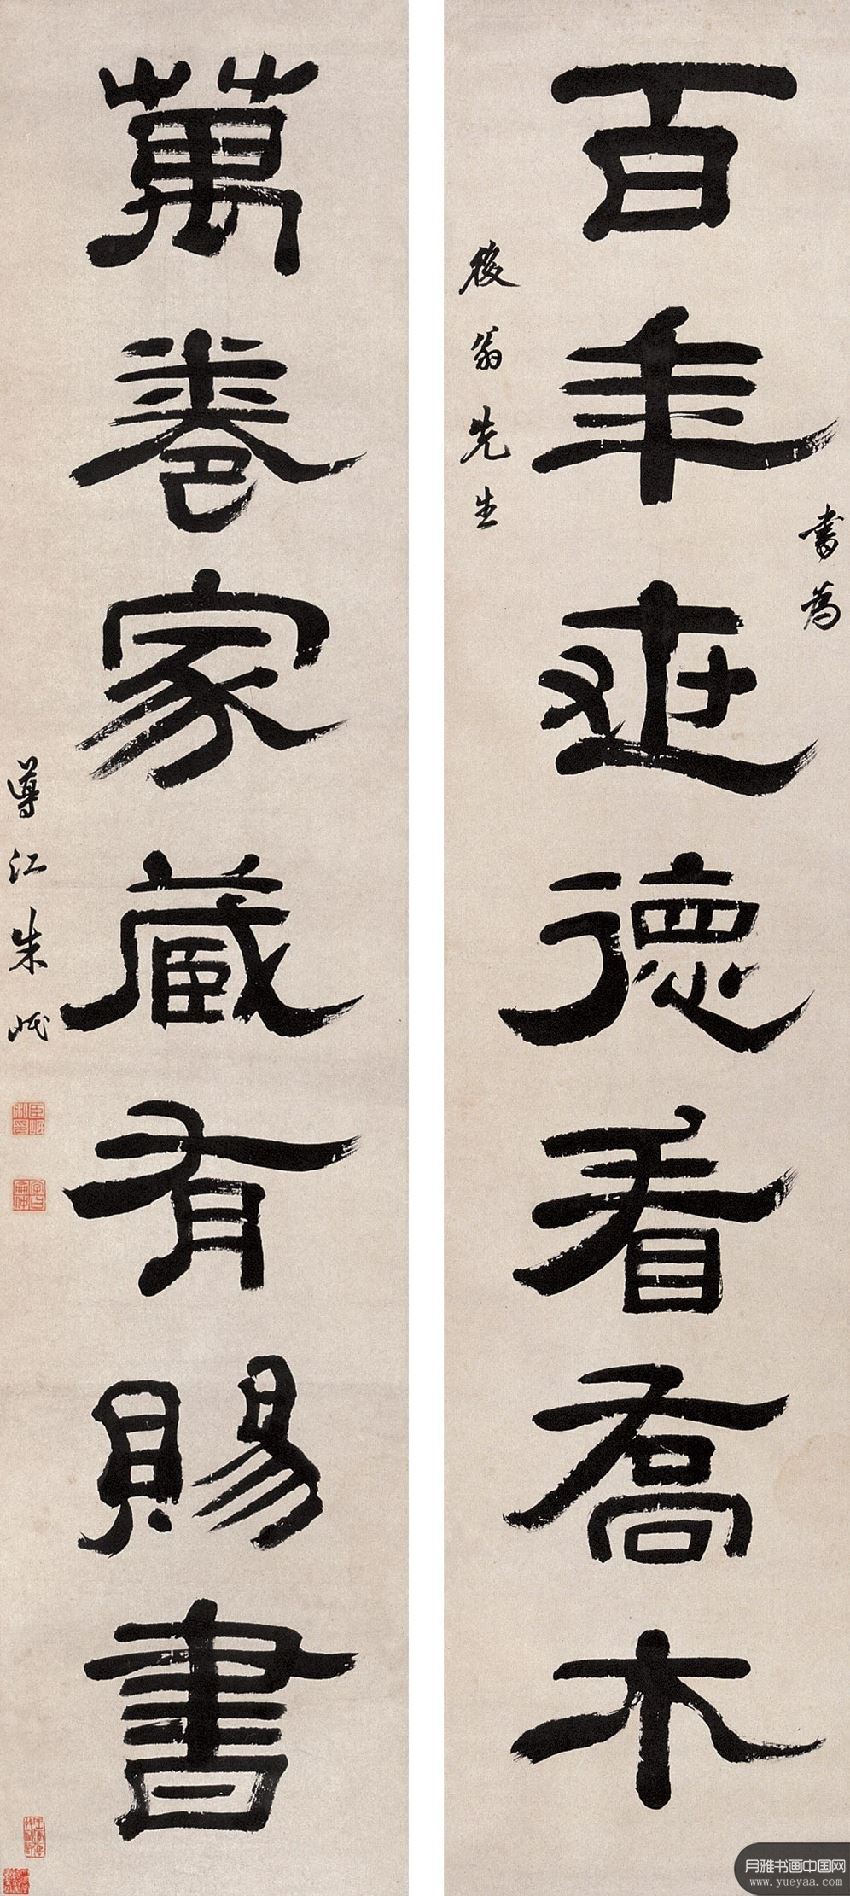 百年世德看喬木
書為
翁先生
萬卷家藏有賜書
導江朱岷
月雅书画中国网
www.yueyaa.com